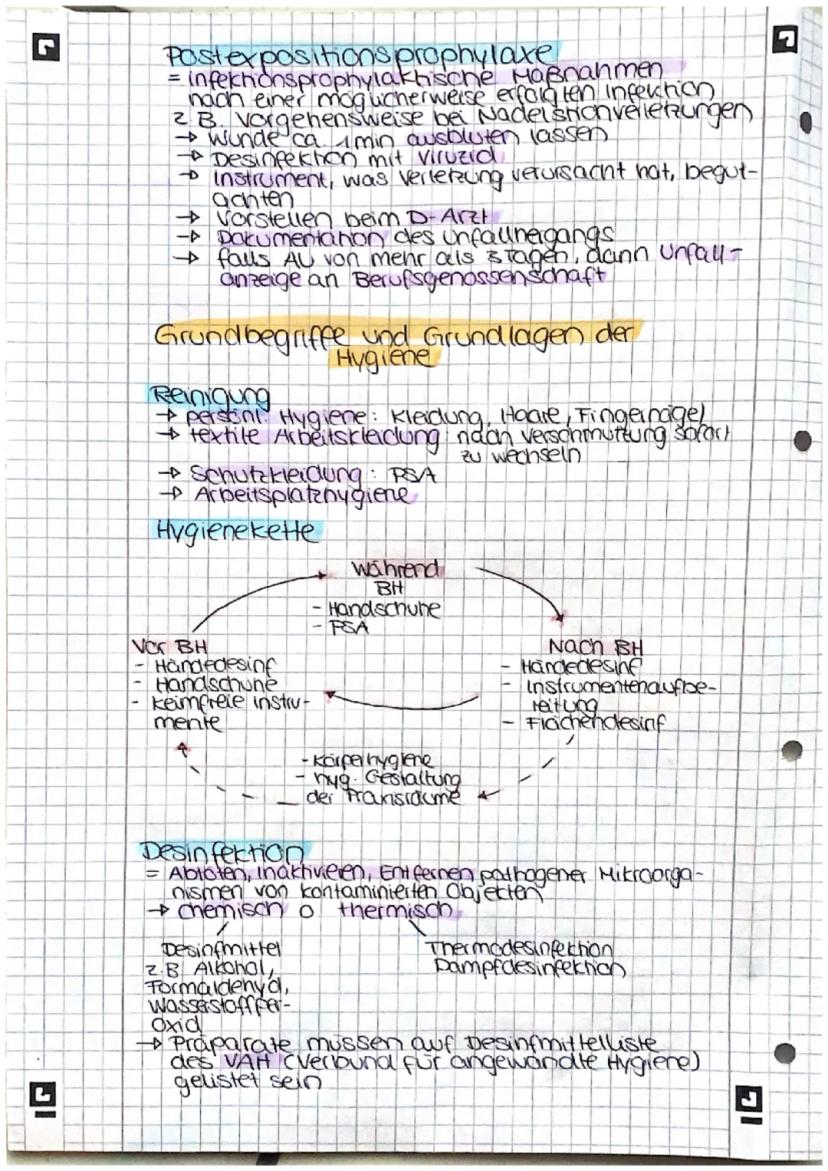 Postexpositionsprophylaxe
= infektionsprophylaktische Maßnahmen
nach einer möglicherweise erfolgten Infektion
z.B. Vorgehensweise bei Nadelstichverletzungen
→ Wunde ca. 1min ausbluten lassen
→ Desinfektion mit Viruzid
→ Instrument, was Verletzung verursacht hat, begut-
achten
→ Vorstellen beim D-Arzt
→ Dokumentation des Unfallhergangs
→ falls AU von mehr als 3 Tagen, dann Unfall-
anzeige an Berufsgenossenschaft
Grundbegriffe und Grundlagen der
Hygiene
Reinigung
→ persönl. Hygiene: Kleidung, Haare, Fingernägel
→ textile Arbeitskleidung: nach Verschmutzung sofort
zu wechseln
→ Schutzkleidung: PSA
→ Arbeitsplatzhygiene
Hygienekette
Während
BH
- Handschuhe
- PSA
Vor BH
- Händedesinf
- Handschuhe
- keimfreie Instru-
mente
Nach BH
- Händedesinf
- Instrumentenaufbe-
reitung
- Flächendesinf
- Körperhygiene
- hyg. Gestaltung
der Praxisräume
Desinfektion
= Abtöten, Inaktivieren, Entfernen pathogener Mikroorga-
nismen von kontaminierten Objekten
→ chemisch o thermisch
Desinfmittel
z.B. Alkohol,
Formaldehyd,
Wasserstoffper-
oxid
Thermodesinfektion
Dampfdesinfektion
→ Präparate müssen auf Desinfmittelliste
des VAH (Verbund für angewandte Hygiene)
gelistet sein